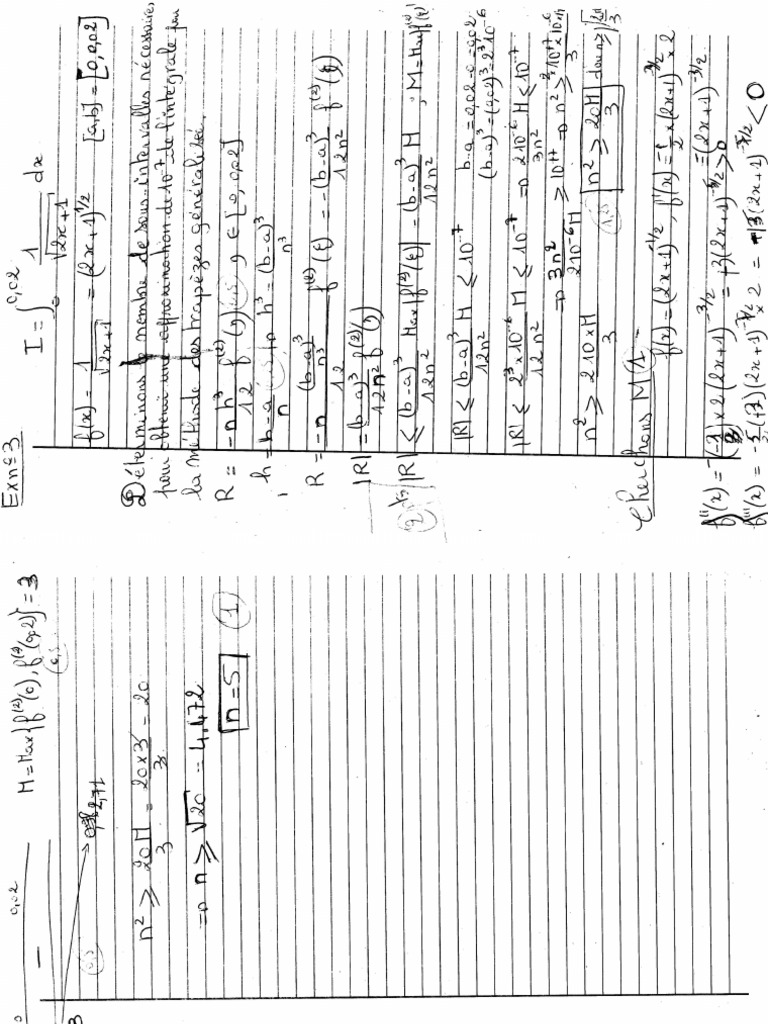 Ex n°3
I = ∫₀^0,02 1/√(2x+1) dx
f(x) = 1/√(2x+1) = (2x+1)^1/2 [a,b] = [0, 0,02]
Déterminons le nombre de sous-intervalles nécessaires
pour obtenir une approximation de 10^-7 de l'intégrale par
la méthode des trapèzes généralisé.
R = -nh³/12 f^(2)(η) 0,5 , η ∈ [0, 0,02]
, h = b-a/n => h³ = (b-a)³/n³
R = -n (b-a)³/n³ / 12 f^(2)(ξ) = -(b-a)³/12n² f^(2)(ξ)
|R| = (b-a)³/12n² f^(2)(η)
|R| ≤ (b-a)³/12n² Max|f^(2)(ξ)| = (b-a)³/12n² M , M = Max f^(2)(ξ)
|R| ≤ (b-a)³/12n² M ≤ 10^-7
b-a = 0,02-0 = 0,02
(b-a)³ = (0,02)³ = 2³ 10^-6
|R| ≤ 2³×10^-6/12n² M ≤ 10^-7 => 2 10^-6/3n² M ≤ 10^-7
=> 3n²/2 10^-6 M ≥ 10^+7 => n² ≥
n² ≥ 2 10 × M/3
n² ≥ 20M/3
Cherchons M
f(x) = (2x+1)^-1/2 , f'(x) = (2x+1)^-3/2 × 2
= (2x+1)^-3/2
f^(ii)(x) = × 2 (2x+1) = +3(2x+1)^-5/2 > 0
f^(iii)(x) = (2x+1)^-7/2 × 2 = (2x+1)^-7/2 < 0
0 0,02
−
3
2,71
0,5
M = Max{f^(2)(0), f^(2)(0,02)} = 3
0,5
n² ≥ 20M/3 = 20×3/3 = 20
=> n ≥ √20 = 4,472
n = 5
1